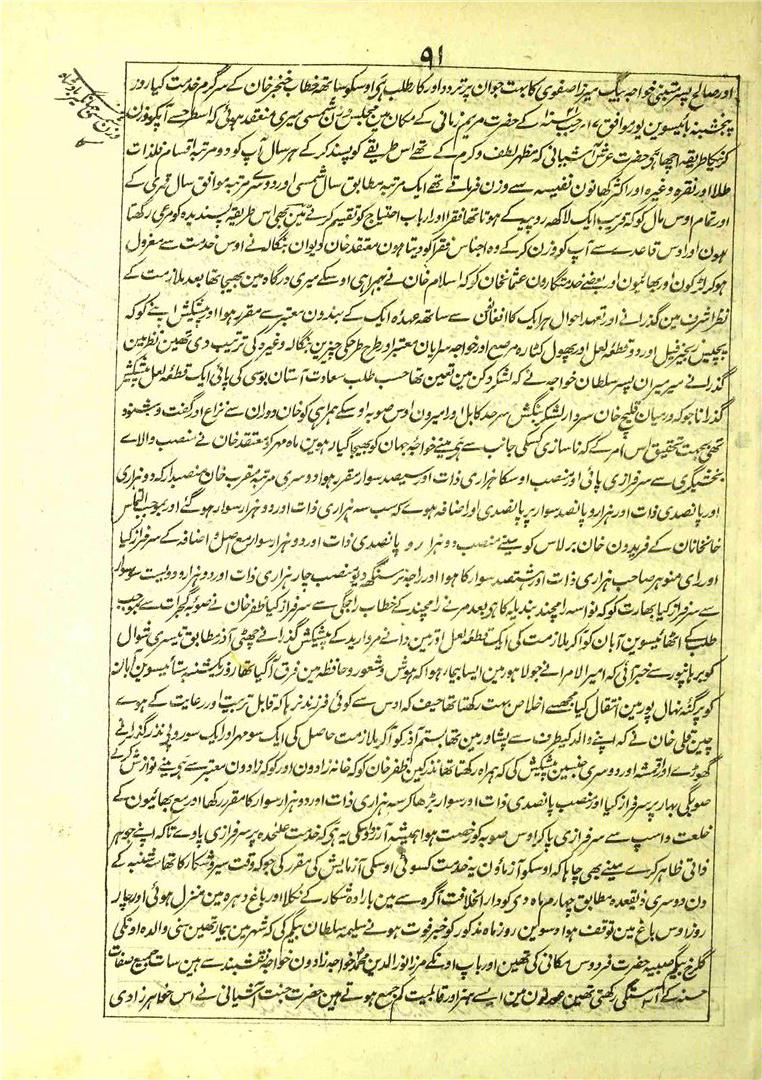 ۹۱
اور صالح پسر متبنی خواجہ بیگ میرزا صفوی کا بہت جوان پر تردد اور کار طلب ہی اوسکو ساتھ خطاب خنجر خان کے سرگرم خدمت کیا روز
پنجشنبہ بائیسوین یور موافق ۱۷ رجب کے حضرت مریم زمانی کے مکان مین مجلس وزن شمسی میری منعقد ہوئی کہ اسطرح سے آپکو وزن
کرنیکا طریقہ اچھا ہی حضرت عرش آشیانی کہ مظہر لطف و کرم کے تھے اس طریقے کو پسند کر کے ہر سال آپ کو دو مرتبہ اقسام فلذات
طلا اور نقرہ وغیرہ اور اکثر کھانون نفیسہ سے وزن فرماتے تھے ایک مرتبہ مطابق سال شمسی اور دوسرے مرتبہ موافق سال قمری کے
اور تمام اوس مال کو کہ قریب ایک لاکھ روپیہ کے ہوتا تھا فقرا اور ارباب احتیاج کو تقسیم کرتے مین بھی اس طریقہ پسندیدہ کو مرعی رکھتا
ہون اور اوس قاعدے سے آپ کو وزن کر کے وہ اجناس فقرا کو دیتا ہون معتقد خان دیوان بنگالہ نے اوس خدمت سے معزول
ہو کر لڑکون اور بھائیون اور بعضے خدمتگارون عثمانخان کو کہ اسلام خان نے ہمراہی اوسکے میری درگاہ مین بھیجا تھا بعد ملازمت کے
نظر اشرف مین گذرانے اور تعہد احوال ہر ایک کا افغانون سے ساتھ عہدہ ایک کے بندون معتبر سے مقرر ہوا اور پیشکش اپنے کو کہ
پچیس زنجیر فیل اور دو قطعہ لعل اور پھول کٹارہ مرصع اور خواجہ سرایان معتبر اور طرح طرحکی چیزین بنگالہ وغیرہ کی ترتیب دی تھین نظر مین
گذرانے میر میران پسر سلطان خواجہ نے کہ لشکر دکن مین تعین تھا حسب طلب سعادت آستان بوسی کی پائی ایک قطعہ لعل پیشکش
گذرانا جو کہ درمیان قلیچ خان سردار لشکر بنگش سرحد کابل اور امیرون اوس صوبہ اوسکے ہمراہی کو خان دوران سے نزاع اور گفت و شنود
تھی بجہت تحقیق اس امر کے کہ ناسازی کسکی جانب سے ہی مینے خواجہ جہان کو بھیجا گیارھوین ماہ مہر کو معتقد خان نے منصب والاے
بخشیگری سے سرفرازی پائی اور منصب اوسکا ہزاری ذات اور سیصد سوار مقرر ہوا دوسری مرتبہ مقرب خان منصبدار کہ دو ہزاری
اور پانصدی ذات اور ہزار و پانصد سوار پر پانصدی اور اضافہ ہوے کہ سب سہ ہزاری ذات اور دو ہزار سوار ہو گئے اور بموجب التماس
خانخانان کے فریدون خان برلاس کو مینے منصب دو ہزار و پانصدی ذات اور دو ہزار سوار مع اصل و اضافہ کے سرفراز کیا
اور رای منوہر صاحب ہزاری ذات اور ہشتصد سوار کا ہوا اور راجہ نرسنگھ دیو منصب چار ہزاری ذات اور دو ہزار و دویست سوار
سے سرفراز کیا بھارت کو کہ نواسہ رامچند بندیلہ کا ہو بعد مرنے رامچند کے خطاب راجگی سے سرفراز کیا ظفر خان نے صوبہ گجرات سے بموجب
طلب کے اٹھائیسوین آبان کو آکر ملازمت کی ایک قطعہ لعل اور تین دانے مروارید کے پیشکش گذرانے چھٹی آذر مطابق تیسری شوال
کو برہانپور سے خبر آئی کہ امیر الامرا نے جو لاہور مین ایسا بیمار ہوا کہ ہوش و شعور و حافظہ مین فرق آ گیا تھا روز یکشنبہ ستائیسوین آبان
کو پرگنہ نہال پور مین انتقال کیا مجھسے اخلاص بہت رکھتا تھا حیف کہ اوس سے کوئی فرزند نرہا کہ قابل تربیت اور رعایت کے ہوے
چین قلی خان نے کہ اپنے والد کیطرف سے پشاور مین تھا بستم آذر کو آکر ملازمت حاصل کی ایک سو مہر اور ایک سو روپی نذر گذرانے
گھوڑے اور اقمشہ اور دوسری جنسین پیشکش کی کہ ہمراہ رکھتا تھا نذر کین ظفر خان کو کہ خانہ زادون اور کوکہ زادون معتبر سے ہی مینے نوازش کرکے
صوبگی بہار پر سرفراز کیا اور منصب پانصدی ذات اور سوار بڑھا کر سہ ہزاری ذات اور دو ہزار سوار کا مقرر رکھا اور مع بھائیون کے
خلعت و اسپ سے سرفرازی پا کر اوس صوبہ کو رخصت ہوا ہمیشہ آرزو اوسکی یہ تھی کہ خدمت علیحدہ پر سرفرازی پاوے تاکہ اپنے جوہر
ذاتی ظاہر کرے مینے بھی چاہا کہ اوسکو آزماؤن یہ خدمت کسوٹی اوسکی آزمایش کی مقرر کی جو کہ وقت سیر و شکار کا تھا سہ شنبہ کے
دن دوسری ذیقعدہ مطابق چہارم ماہ دی کو دار الخلافت آگرہ سے مین بارادۂ شکار کے نکلا اور باغ دہرہ مین منزل ہوئی اور چار
روز اوس باغ مین توقف ہوا دسوین روز ماہ مذکور کو خبر فوت ہونے سلیمہ سلطان بیگم کی کہ شہر مین بیمار تھین سنی والدہ اونکی
گلرخ بیگم صبیہ حضرت فردوس مکانی کی تھین اور باپ اونکے مرزا نور الدین محمد خواجہ زادون خواجہ نقشبند سے ہین سات جمیع صفات
حسنہ کے آراستگی رکھتی تھین عورتون مین ایسے ہنر اور قابلیت کم جمع ہوتے ہین حضرت جنت آشیانی نے اس خواہر زادی